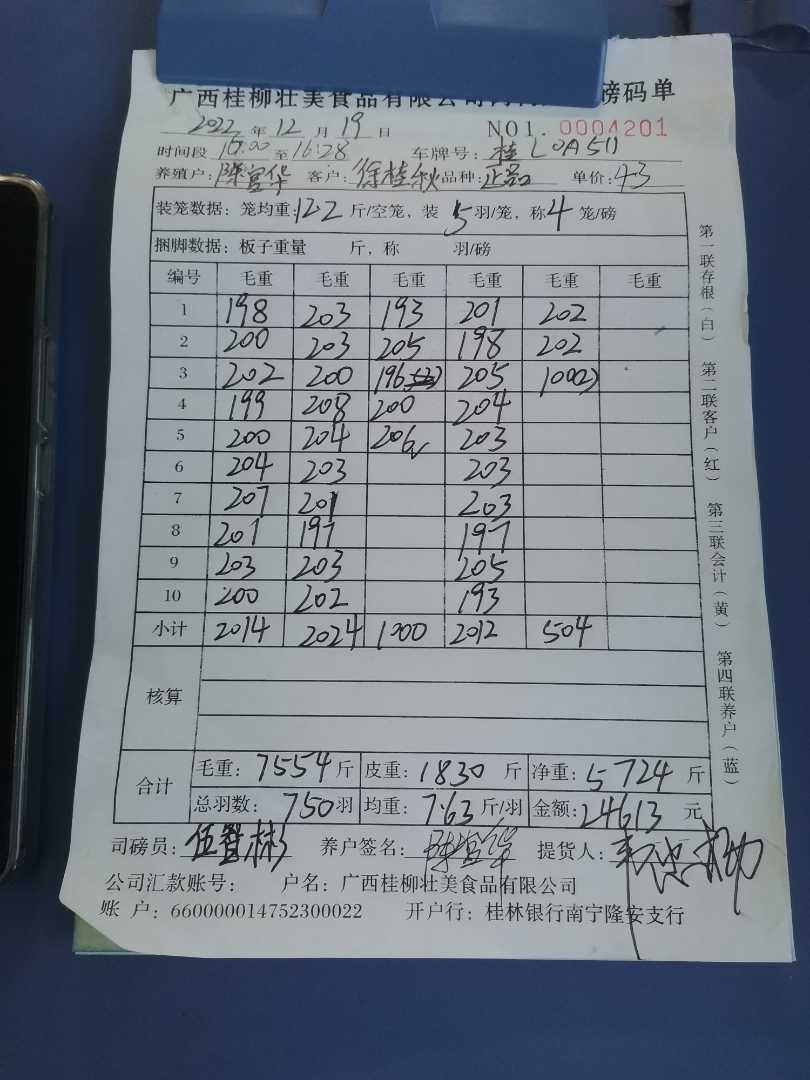 广西桂柳壮美食品有限公司 磅码单
2022年12月19日 NO1.0004201
时间段 10:00至16:28 车牌号：桂L0A511
养殖户：陈富华 客户：徐桂秋 品种：正品 单价：4.3
装笼数据：笼均重：12.2斤/空笼，装5羽/笼，称4笼/磅
捆脚数据：板子重量 斤，称 羽/磅
编号 毛重 毛重 毛重 毛重 毛重 毛重
1 198 203 193 201 202
2 200 203 205 198 202
3 202 200 196 205 100(2)
4 199 208 200 204
5 200 204 206 203
6 204 203 203
7 207 201 203
8 201 197 197
9 203 203 205
10 200 202 193
小计 2014 2024 1000 2012 504
核算
合计 毛重：7554斤 皮重：1830斤 净重：5724斤
总羽数：750羽 均重：7.63斤/羽 金额：24613元
司磅员：伍登彬 养户签名：陈富华 提货人：
公司汇款账号： 户名：广西桂柳壮美食品有限公司
账 户：660000014752300022 开户行：桂林银行南宁隆安支行
第一联存根（白） 第二联客户（红） 第三联会计（黄） 第四联养户（蓝）